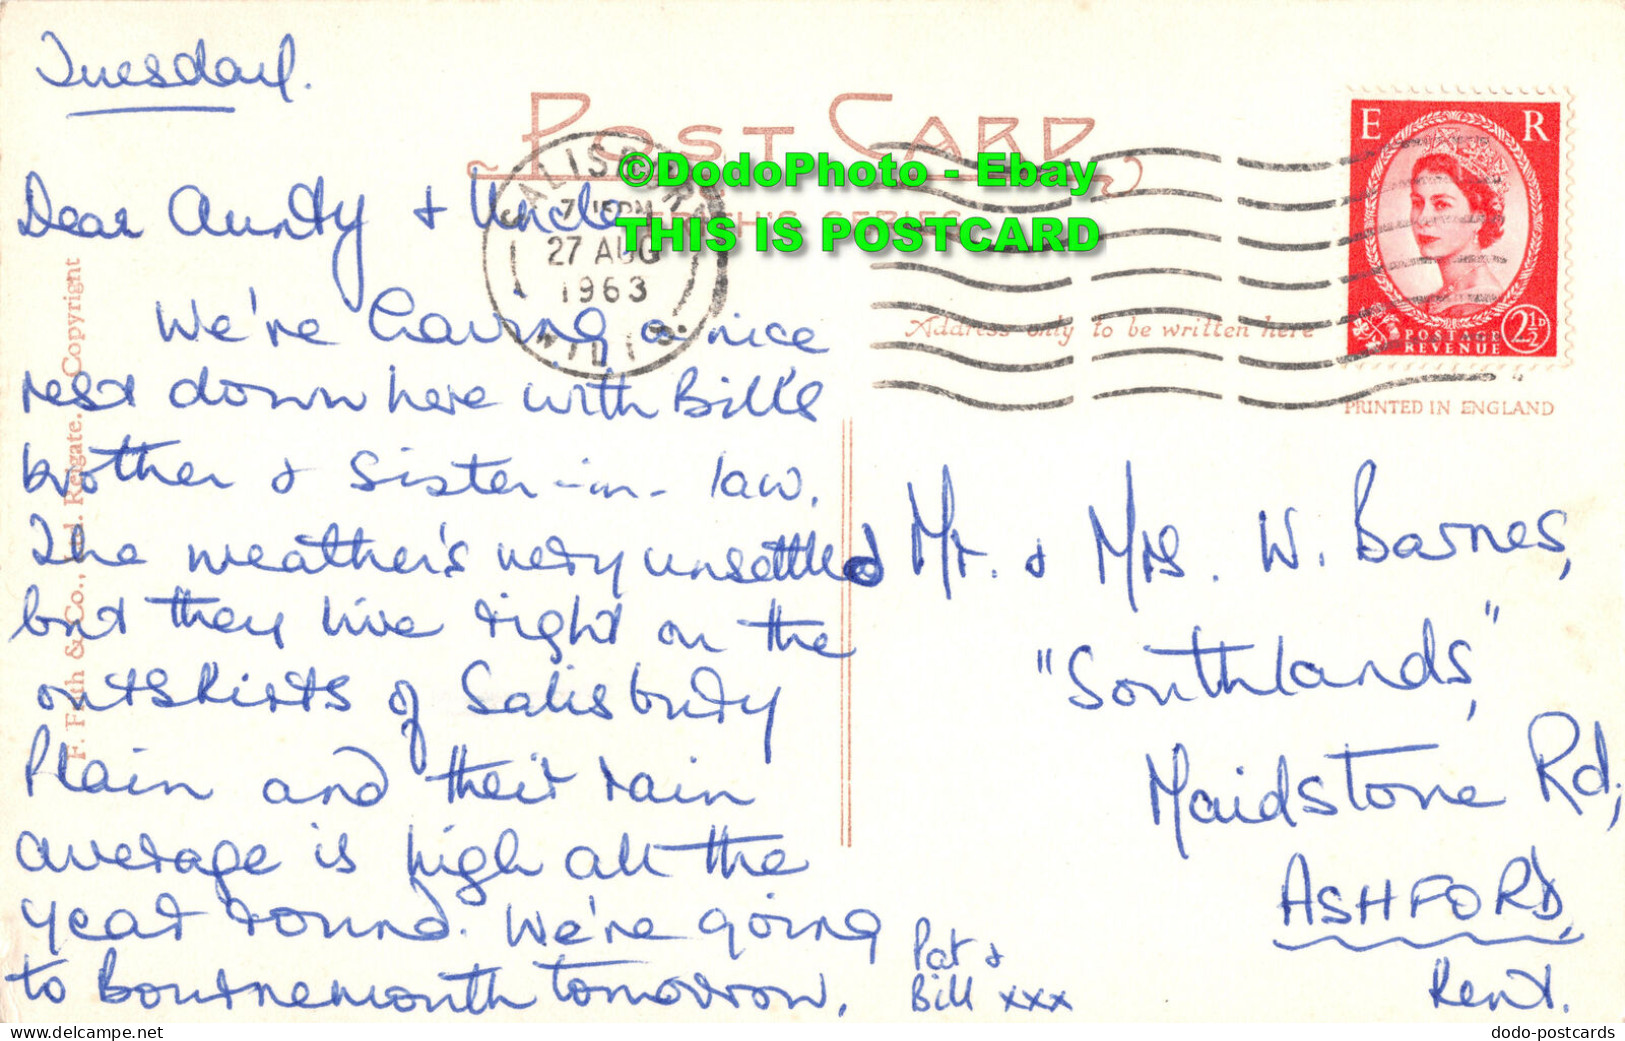 Tuesday.
POST CARD
©DodoPhoto - Ebay
THIS IS POSTCARD
FRITH'S SERIES
SALISBURY
27 AUG
1963
WILTS.
E R
POSTAGE
REVENUE
2½D
Address only to be written here
PRINTED IN ENGLAND
F. Frith & Co., Ltd. Reigate. Copyright
Dear Aunty & Uncle
We're having a nice
rest down here with Bill's
brother & sister-in-law.
The weather's very unsettled
but they live right on the
outskirts of Salisbury
Plain and their rain
average is high all the
year round. We're going
to Bournemouth tomorrow.
Pat &
Bill xxx
Mr. & Mrs. W. Barnes,
"Southlands,"
Maidstone Rd,
ASHFORD,
Kent.
dodo-postcards